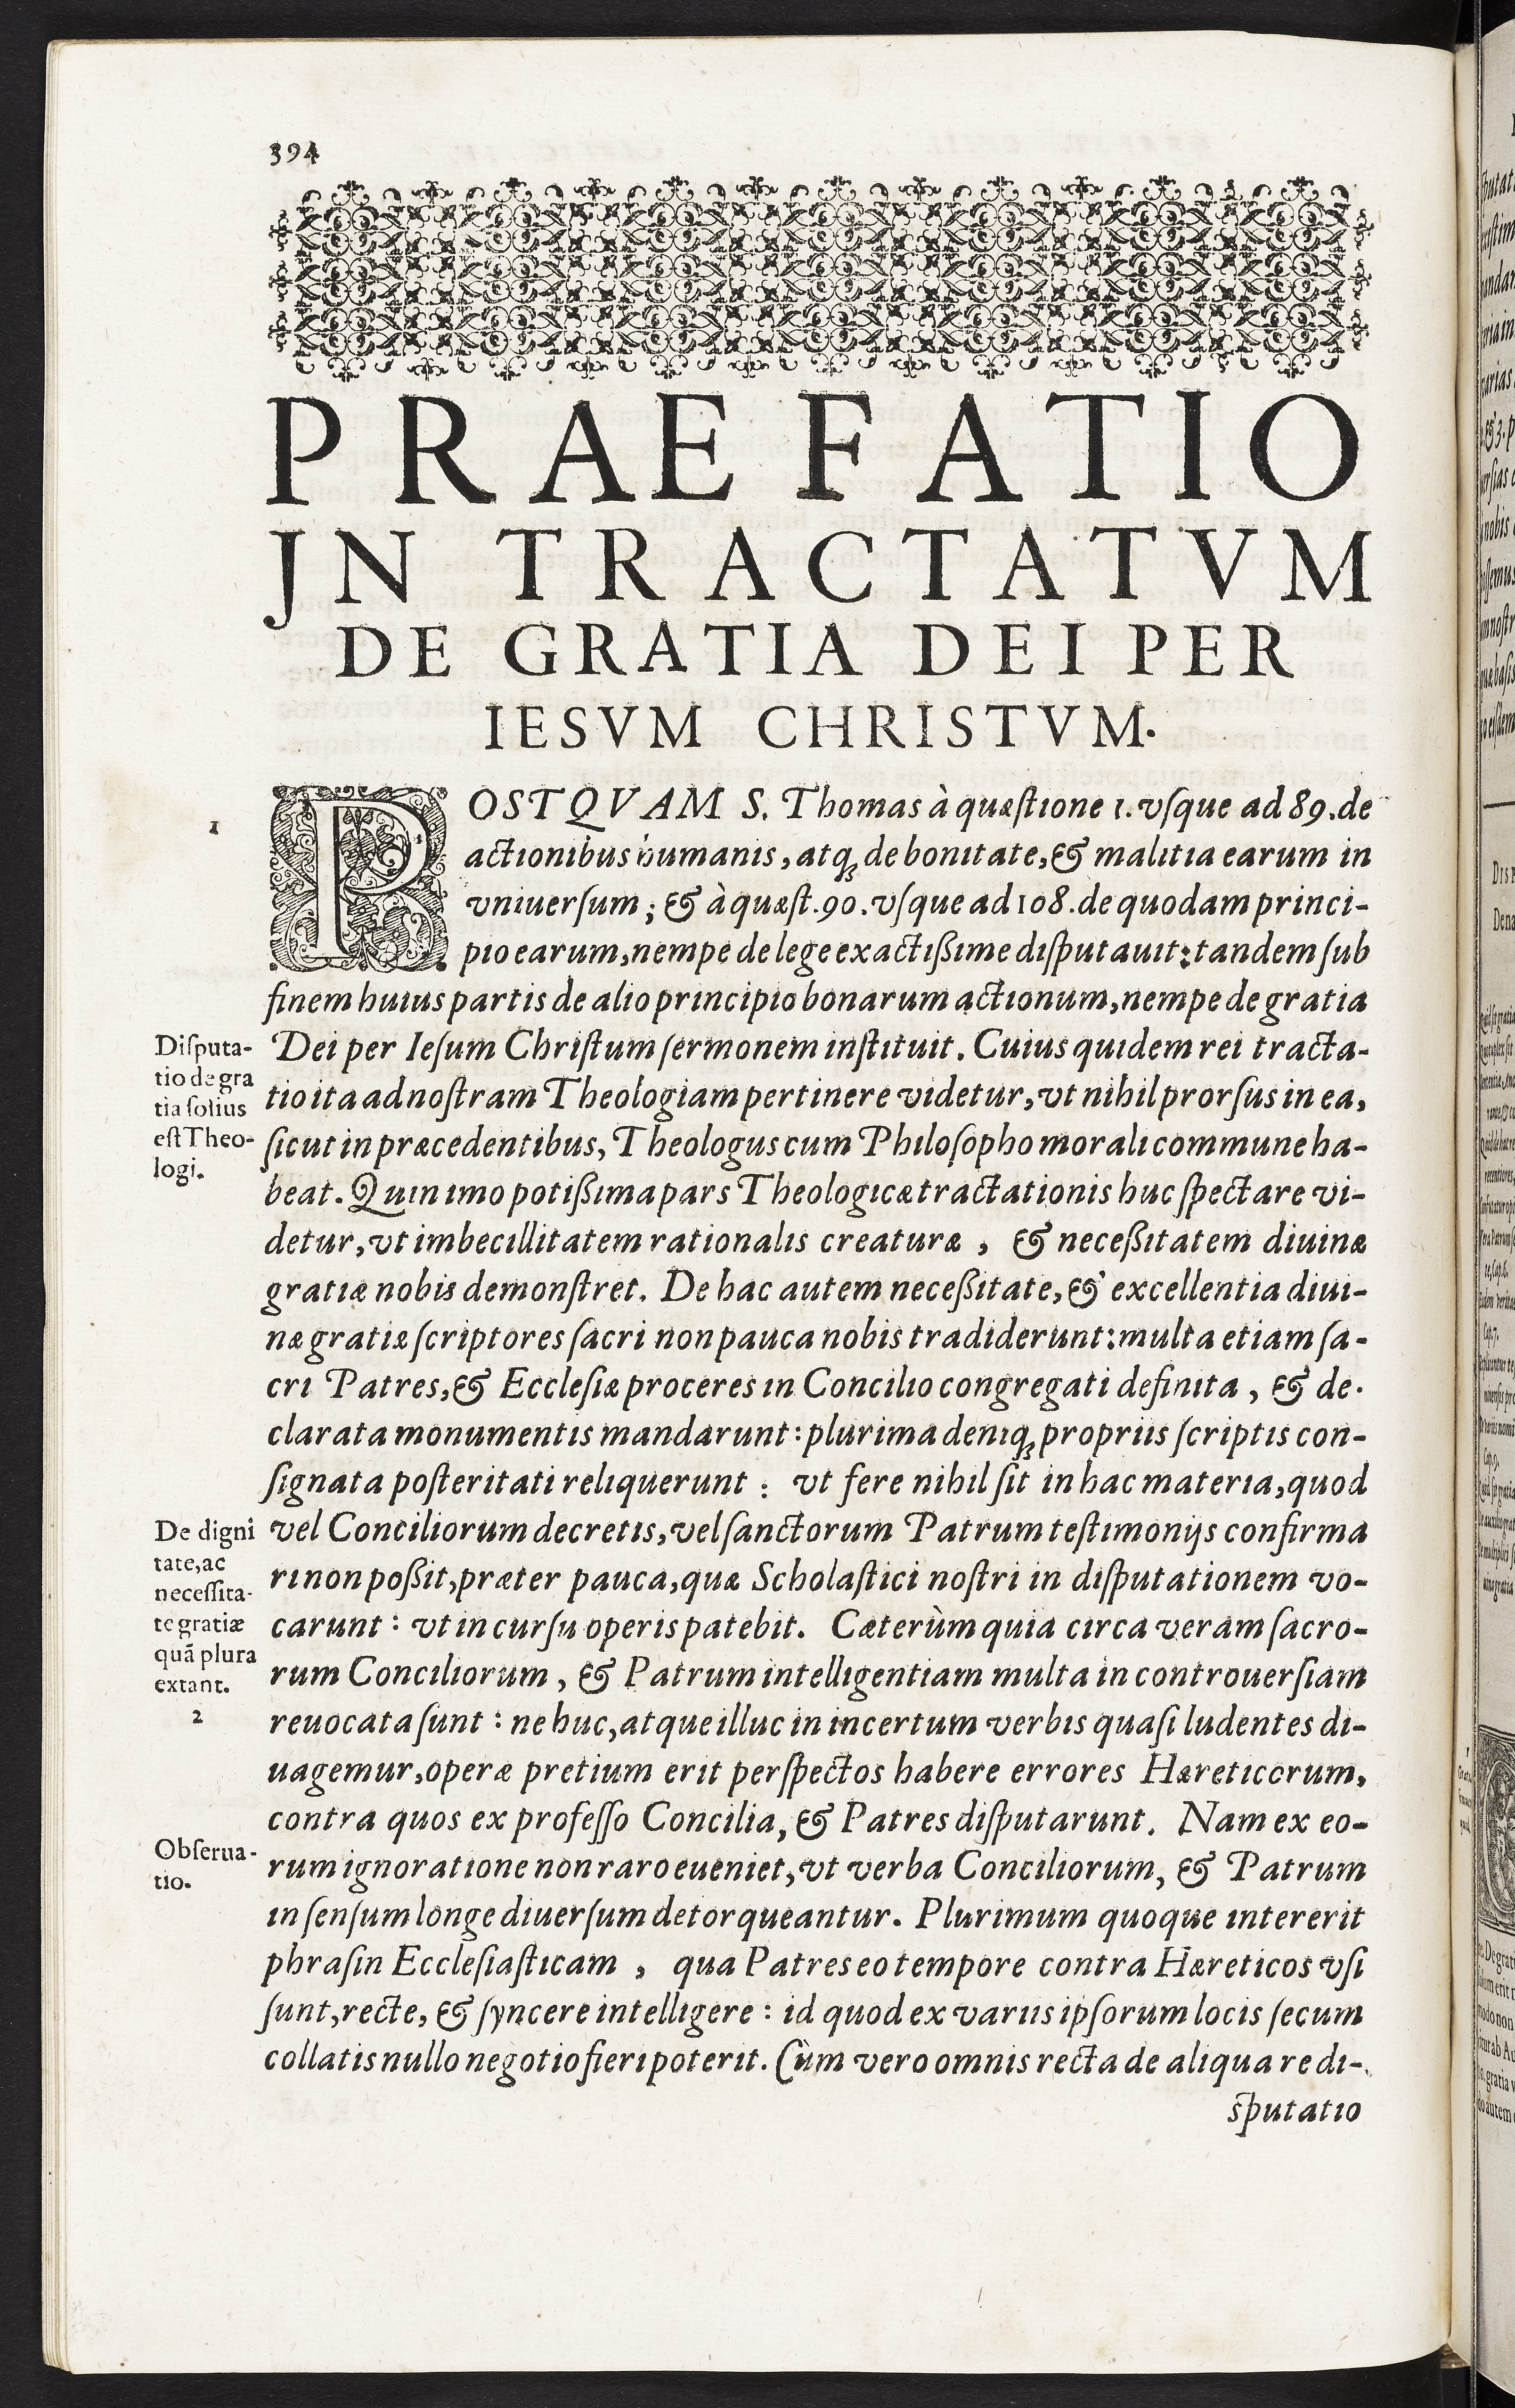 394
PRAEFATIO
JN TRACTATVM
DE GRATIA DEI PER
IESVM CHRISTVM.
1
POSTQVAM S. Thomas à quæſtione 1. vſque ad 89. de
actionibus humanis, atq; de bonitate, & malitia earum in
vniuerſum; & à quæſt. 90. vſque ad 108. de quodam princi-
pio earum, nempe de lege exactißime diſputauit: tandem ſub
finem huius partis de alio principio bonarum actionum, nempe de gratia
Dei per Ieſum Chriſtum ſermonem inſtituit. Cuius quidem rei tracta-
tio ita ad noſtram Theologiam pertinere videtur, vt nihil prorſus in ea,
ſicut in præcedentibus, Theologus cum Philoſopho morali commune ha-
beat. Quin imo potißima pars Theologicæ tractationis huc ſpectare vi-
detur, vt imbecillitatem rationalis creaturæ, & neceßitatem diuinæ
gratiæ nobis demonſtret. De hac autem neceßitate, & excellentia diui-
næ gratiæ ſcriptores ſacri non pauca nobis tradiderunt: multa etiam ſa-
cri Patres, & Eccleſiæ proceres in Concilio congregati definita, & de-
clarata monumentis mandarunt: plurima deniq; propriis ſcriptis con-
ſignata poſteritati reliquerunt: vt fere nihil ſit in hac materia, quod
vel Conciliorum decretis, vel ſanctorum Patrum teſtimonijs confirma
ri non poßit, præter pauca, quæ Scholaſtici noſtri in diſputationem vo-
carunt: vt in curſu operis patebit. Cæterùm quia circa veram ſacro-
rum Conciliorum, & Patrum intelligentiam multa in controuerſiam
reuocata ſunt: ne huc, atque illuc in incertum verbis quaſi ludentes di-
uagemur, operæ pretium erit perſpectos habere errores Hæreticorum,
contra quos ex profeſſo Concilia, & Patres diſputarunt. Nam ex eo-
rum ignoratione non raro eueniet, vt verba Conciliorum, & Patrum
in ſenſum longe diuerſum detorqueantur. Plurimum quoque intererit
phraſin Eccleſiaſticam, qua Patres eo tempore contra Hæreticos vſi
ſunt, recte, & ſyncere intelligere: id quod ex variis ipſorum locis ſecum
collatis nullo negotio fieri poterit. Cùm vero omnis recta de aliqua re di-
ſputatio
Diſputa-
tio de gra
tia ſolius
eſt Theo-
logi.
De digni
tate, ac
neceſſita-
te gratiæ
quã plura
extant.
2
Obſerua-
tio.